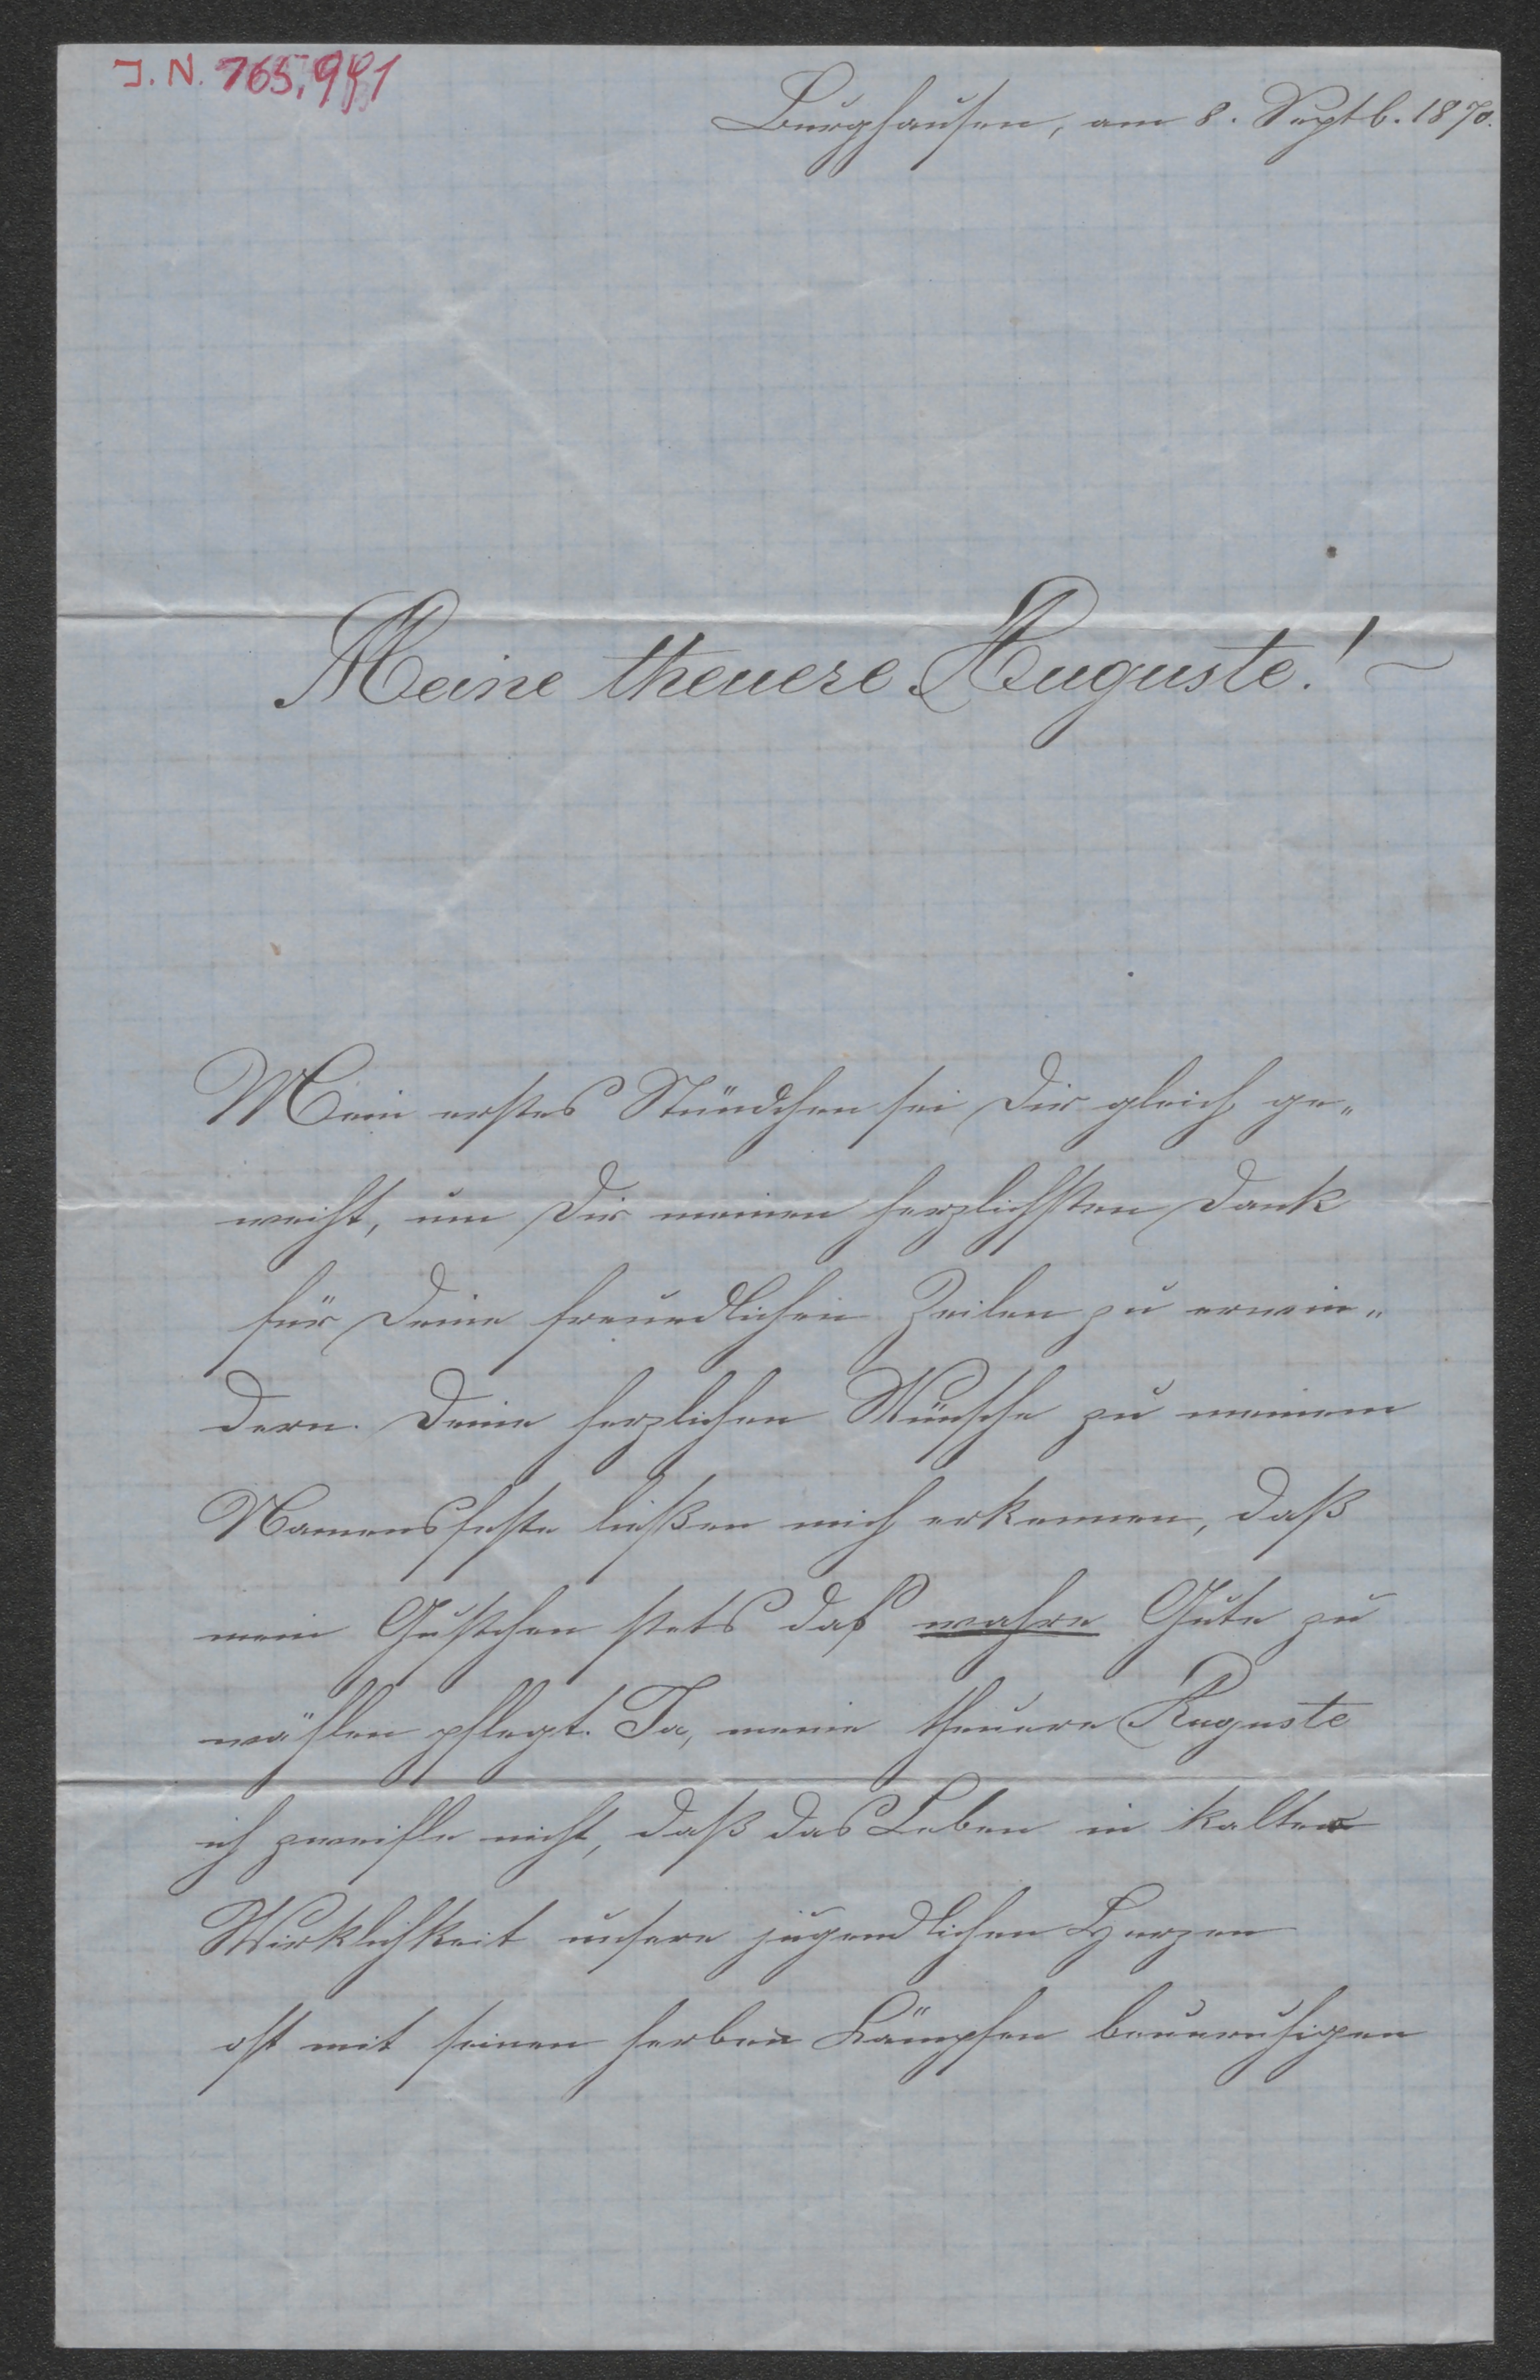 J. N. 765,991
Burghausen, am 8. Septb. 1870.
Meine theuere Auguste! ~
Mein erstes Stündchen sei Dir gleich ge„
weiht, um Dir meinen herzlichsten Dank
für Deine freundlichen Zeilen zu erwie„
dern. Deine herzlichen Wünsche zu meinem
Namensfeste ließen mich erkennen, daß
mein Gustchen stets das wahre Gute zu
wählen pflegt. Ja, meine theuere Auguste
ich zweifle nicht, daß das Leben in kalter
Wirklichkeit unsere jugendlichen Herzen
oft mit seinen herben Kämpfen beunruhigen